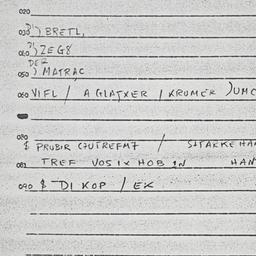 020
030 ") BRETL,
040 ") ZEG8
DER
050 ) MATRAC
060 VIFL / A GLATXER / KRUMER )UMC
080
$ PRUBIR / STARKE HA
081 TREF VOS IX HOB IN HAN
090 $ DI KOP / EK